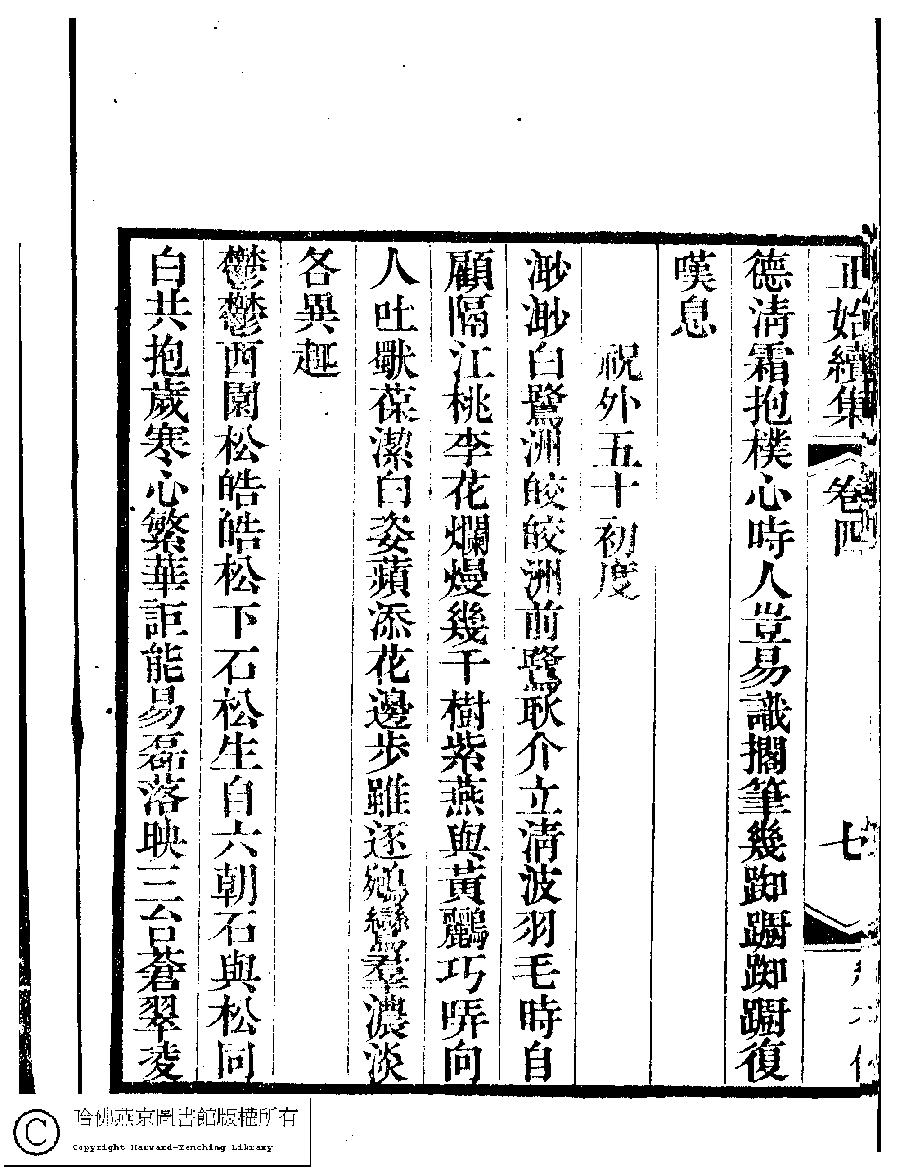 正始續集 卷四 七
德清霜抱樸心時人豈易識擱筆幾踟躕踟躕復
嘆息
祝外五十初度
渺渺白鷺洲皎皎洲前鷺耿介立清波羽毛時自
顧隔江桃李花爛熳幾千樹紫燕與黃鸝巧哢向
人吐歇葆潔白姿蘋添花邊步雖逐鵷鸞羣濃淡
各異趣
鬱鬱西園松皓皓松下石松生自六朝石與松同
白共抱歲寒心繁華詎能易磊落映三台蒼翠凌
哈佛燕京圖書館版權所有
Copyright Harvard-Yenching Library